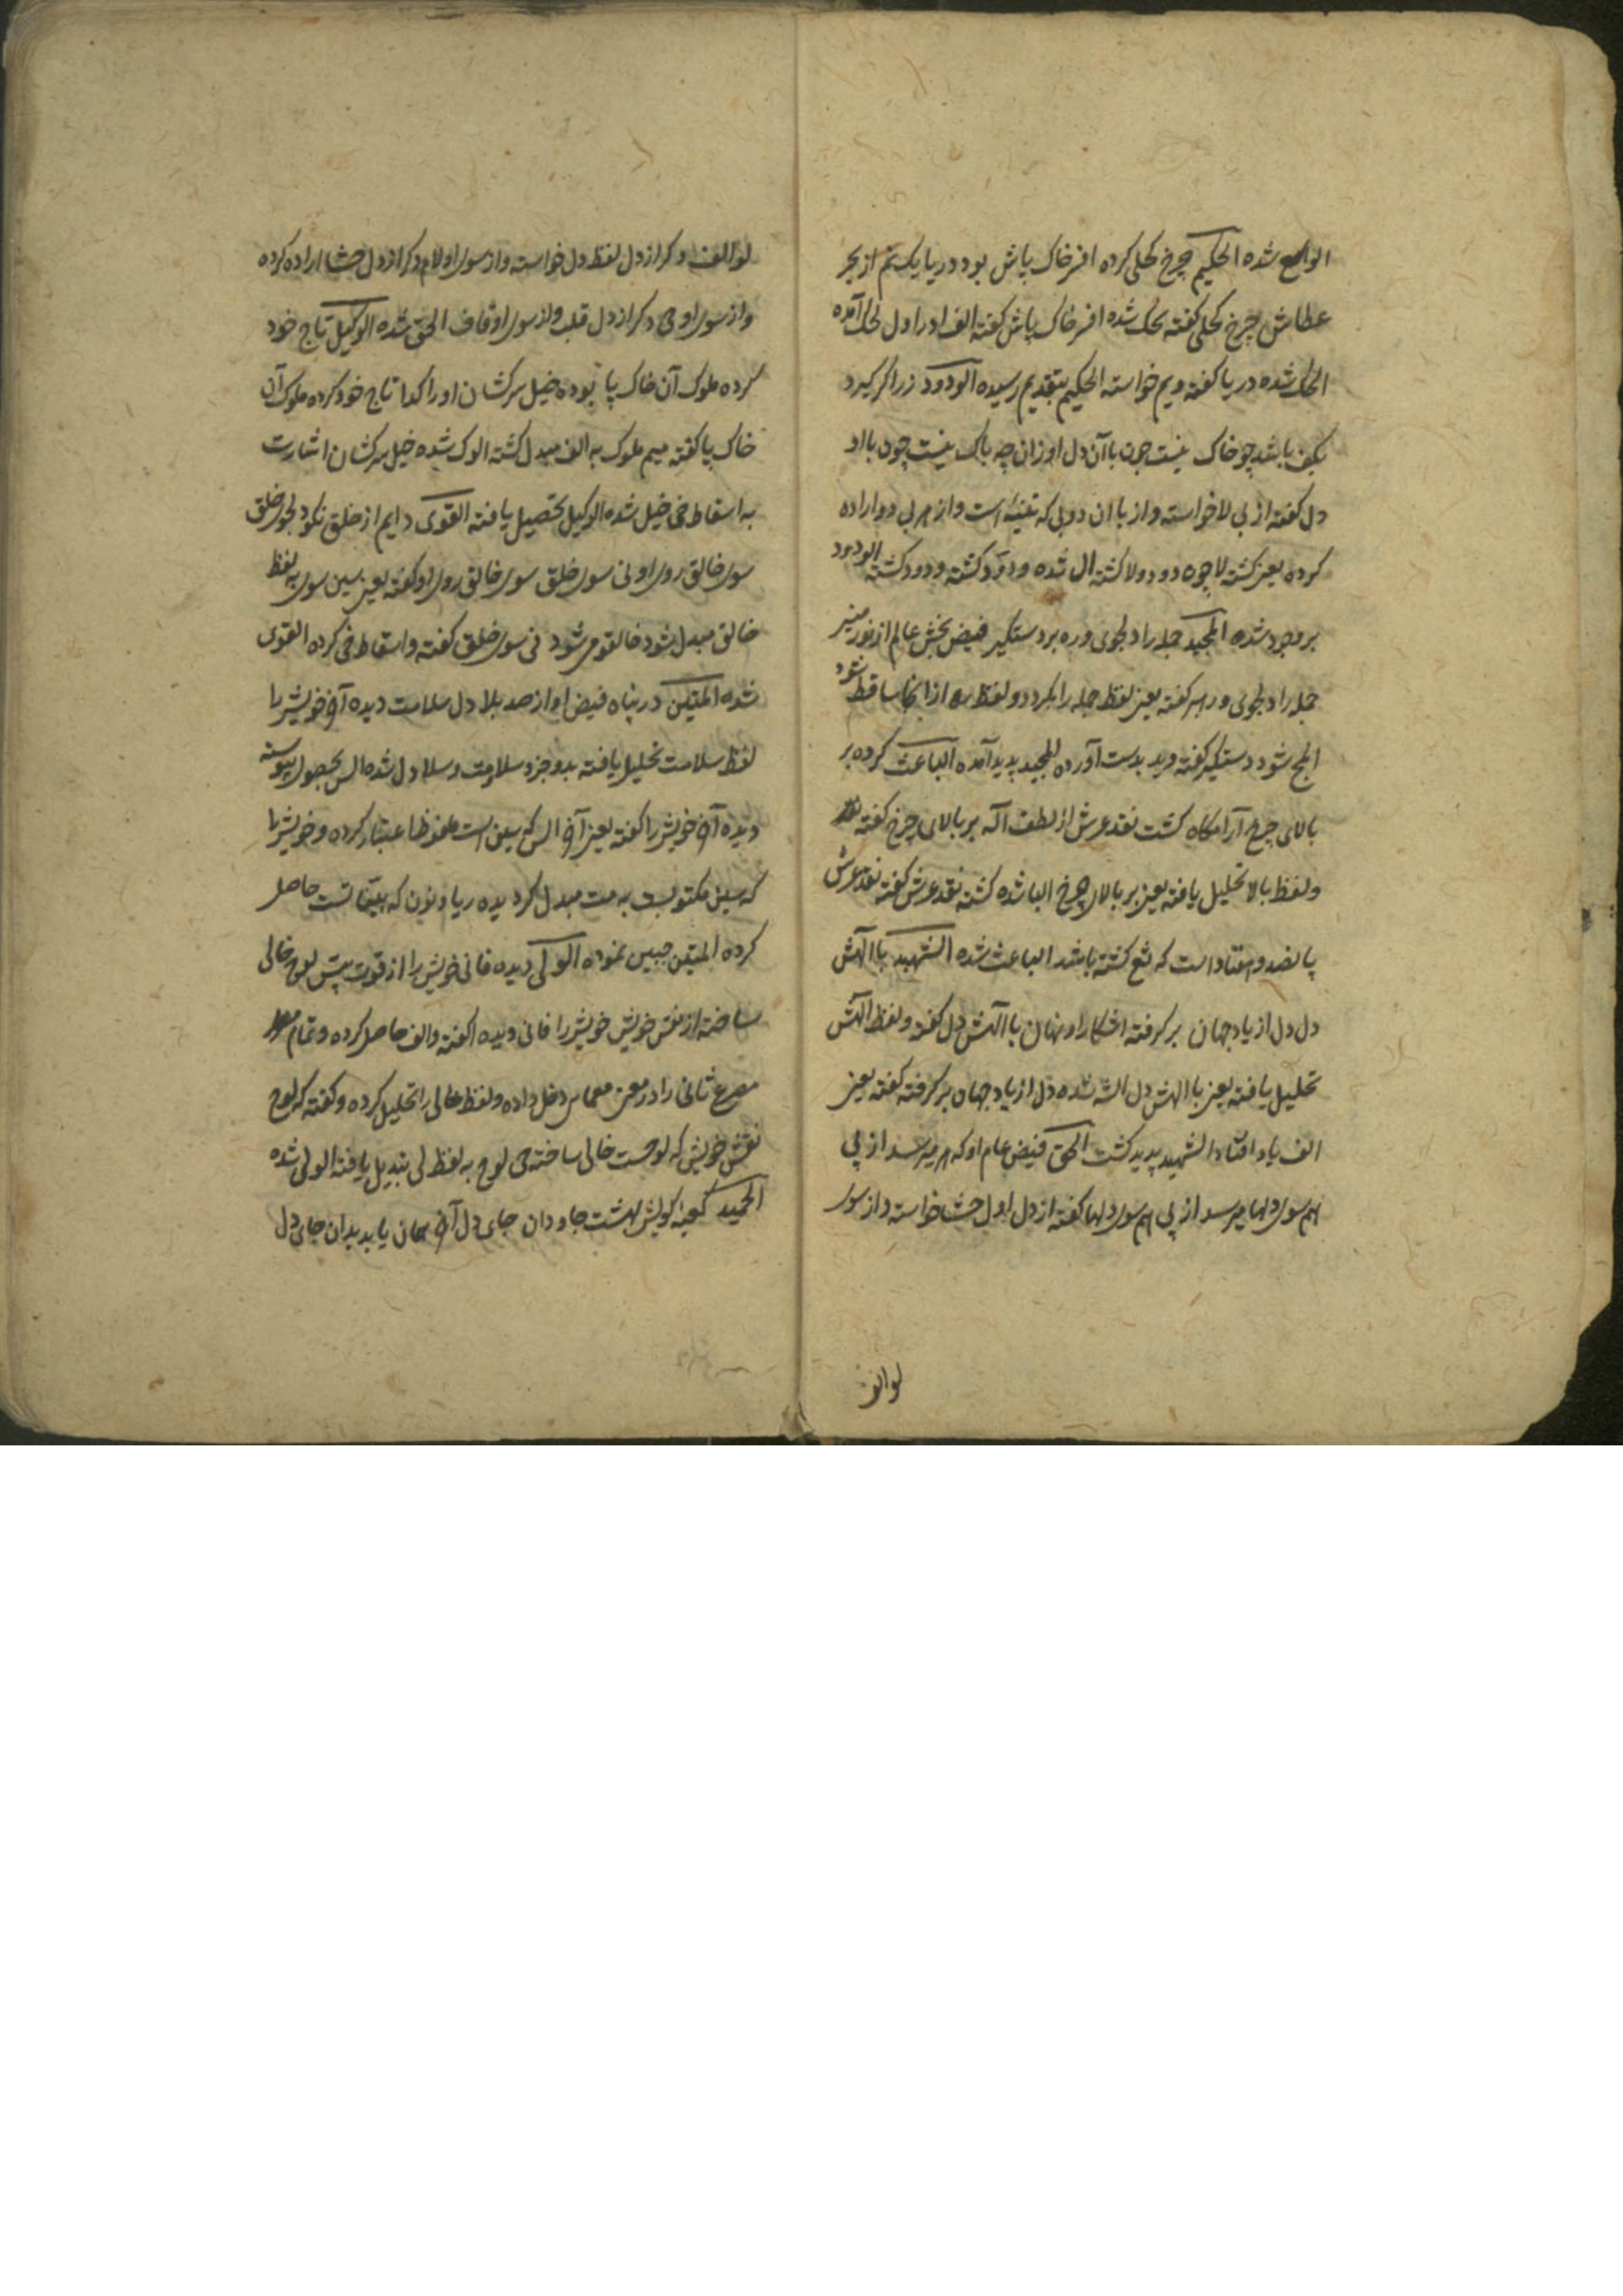 الواسع شده الحکیم چرخ کحلی کرده افسر خاک پاش بود دریا یک نم از بحر
عطاش چرخ کحلی گفته کحل شده افسر خاک پاش گفته الف او را اول کحل آمده
الحک شده دریا گفته و یم خواسته الحکیم بتقدیم رسیده الودود زر اگر گیرد
بکف باشد چو خاک نیست چون با آن دل او زان چه باک نیست چون با او
دل گفته از بی لا خواسته و از با ان دو بل که تثنیه است و از هر بی دو اراده
کرده یعنی گشته لا چوه دو دو لا گشته ال شده و دو دو گشته و دود گشته الودود
بر وجود شده المجید جمله را دلجوی و ره بر دستگیر فیض بخش عالم از نور منیر
جمله را دلجوی و رهبر گفته یعنی لفظ جمله را بگردد و لفظ ره از انجا ساقط شود
المج شود دستگیر گفته و ید بدست آورده المجید پدید آمده الباعث کرده بر
بالای چرخ آرامگاه گشت نقد عرش از لطف اله بر بالای چرخ گفته
و لفظ بالا تحلیل یافته یعنی بر بالای چرخ البا شده گشته نقد عرش گفته نقد عرش
پانصد و هفتاد است که ثع گشته باشد الباعث شده الشهید با الهش
دل دل از یاد جهان برگرفته اشکارا و نهان با الهش دل گفته و لفظ الهش
تحلیل یافته یعنی با الهش دل الشه شده دل از یاد جهان برگرفته گفته یعنی
الف یاد افتاد الشهید پدید گشت الحق فیض عام او که هر میرسد از پی
هم سوی دلها میرسد از پی هم سوی دلها گفته از دل اول حشا خواسته و از سوی
لو الف
لو الف و کر از دل لفظ دل خواسته و از سوی او لام و کر از دل حشا اراده کرده
و از سوی او حی و کر از دل قلب و از سوی او قاف الحق شده الوکیل تاج خود
کرده ملوک آن خاک پا بوده خیل سرکشان او را گدا تاج خود کرده ملوک آن
خاک پا گفته میم ملوک به الف مبدل گشته الوک شده خیل سرکشان اشارت
به اسقاط خی خیل شده الوکیل بتحصیل یافته القوی دایم از خلق نکو دلجوی خلق
سوی خالق روی او نی سوی خلق سوی خالق روی او گفته یعنی سین سوی به لفظ
خالق مبدل شود خالقو می شود نی سوی خلق گفته و اسقاط خی کرده القوی
شده المتین در پناه فیض او از صد بلا دل سلامت دیده آخر خویش را
لفظ سلامت تحلیل یافته بدو جزو سلا و مت و سلا دل شده الس بحصول پیوسته
دیده آخر خویش را گفته یعنی آخر الس که سین است ملفوظا عتبار کرده و خویش را
که سین مکتوبیست به مت مبدل گردیده و یا و نون که بقیه است حاصل
کرده المتین جبین نموده الولی دیده فانی خویش را از قوت پیش لوح خالی
ساخته از نقش خویش خویش را فانی دیده گفته و الف حاصل کرده و تمام
مصرع ثانی را در معنی معمایی دخل داده و لفظ خالی را تحلیل کرده و گفته که لوح
نقش خویش که لوحست خالی ساخته حی لوح به لفظ لی تبدیل یافته الولی شده
الحمید کعبه کویش بهشت جاودان جای دل آخر همان یابد بدان جای دل